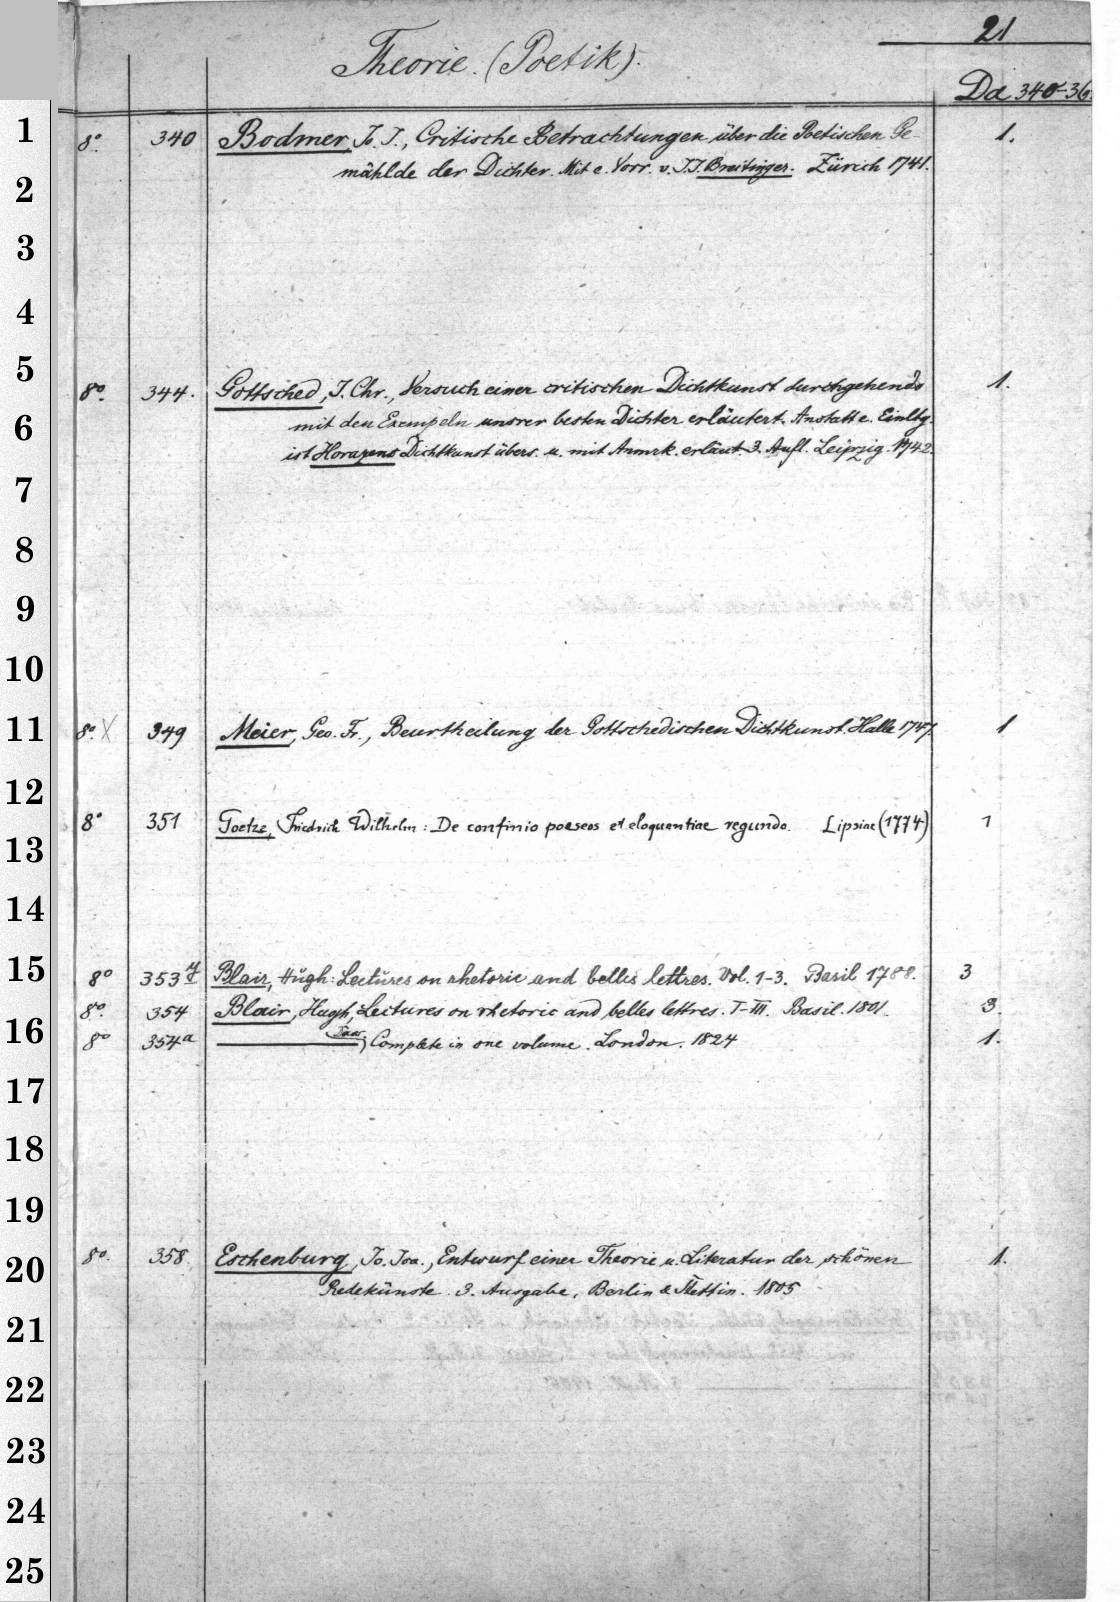 21
Theorie. (Poetik).
Da 340-36
1 8° 340 Bodmer, Jo. J., Critische Betrachtungen über die Poetischen Ge- 1.
2 mählde der Dichter. Mit e. Vorr. v. J. J. Breitinger. Zürich 1741.
3
4
5 8° 344. Gottsched, J. Chr., Versuch einer critischen Dichtkunst durchgehends 1.
6 mit den Exempeln unsrer besten Dichter erläutert. Anstatt e. Einltg.
ist Horazens Dichtkunst übers. u. mit Anmrk. erläut. 3. Aufl. Leipzig. 1742.
7
8
9
10
11 8° X 349 Meier, Geo. Fr., Beurtheilung der Gottschedischen Dichtkunst. Halle 1747. 1
12
8° 351 Goetze, Friedrich Wilhelm: De confinio poeseos et eloquentiae regundo. Lipsiae (1774) 1
13
14
15 8° 353 Blair, Hugh: Lectures on rhetoric and belles lettres. Vol. 1-3. Basil 1788. 3
8° 354 Blair, Hugh, Lectures on rhetoric and belles lettres. I-III. Basil. 1801. 3.
16 8° 354a Complete in one volume. London. 1824 1.
17
18
19
20 8° 358 Eschenburg, Jo. Joa., Entwurf einer Theorie u. Literatur der schönen 1.
Redekünste. 3. Ausgabe, Berlin & Stettin. 1805
21
22
23
24
25